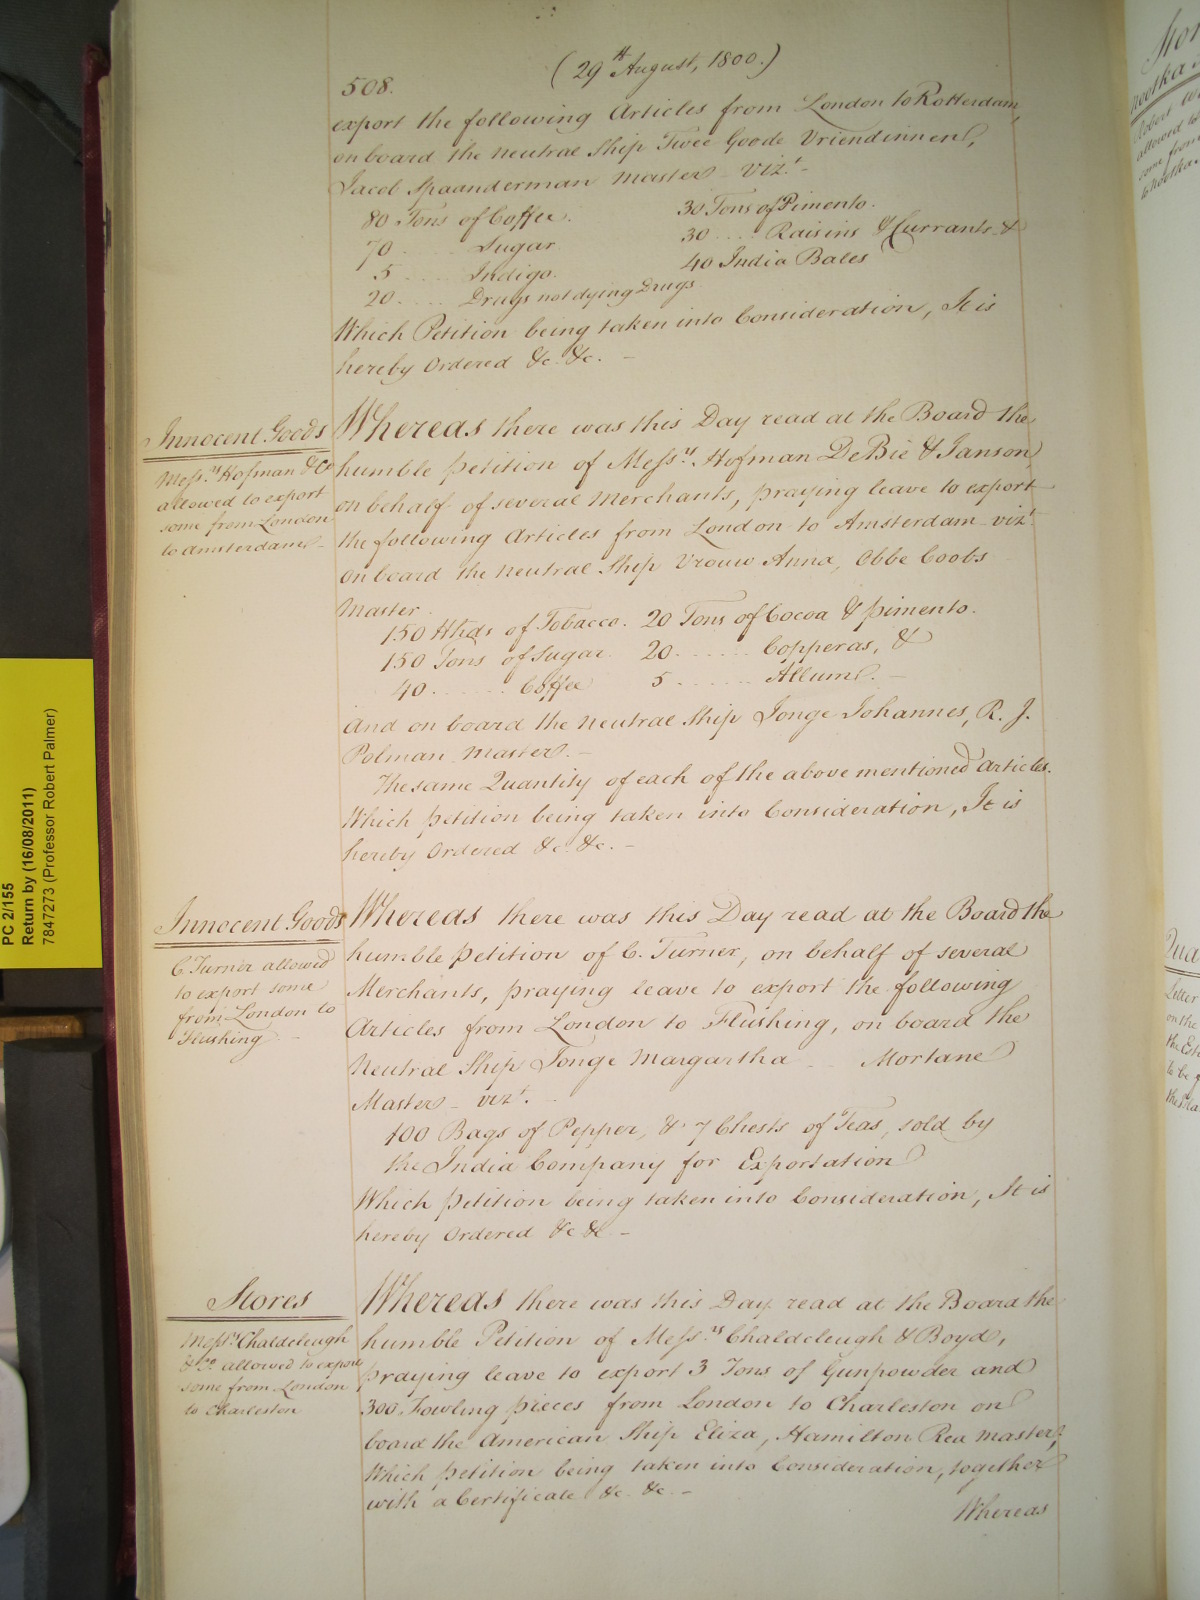 (29th August, 1800.)
508.
export the following Articles from London to Rotterdam,
on board the neutral Ship Twee Goode Vriendinnen,
Jacob Spaanderman Master - Vizt. -
80 Tons of Coffee. 30 Tons of Pimento.
70 .... Sugar 30 .... Raisins & Currants &
5 .... Indigo. 40 India Bales
20 .... Drugs not dying Drugs
Which Petition being taken into Consideration, It is
hereby Ordered &c. &c. -
Innocent Goods
Messrs. Hofman & Co
allowed to export
some from London
to Amsterdam -
Whereas there was this Day read at the Board the
humble petition of Messrs. Hofman DeBie & Janson
on behalf of several Merchants, praying leave to export
the following Articles from London to Amsterdam vizt.
on board the neutral Ship Vrouw Anna, Obbe Coobs
Master
150 Hhds of Tobacco. 20 Tons of Cocoa & pimento.
150 Tons of Sugar 20 ...... Copperas, &
40 ...... Coffee 5 ...... Allum. -
And on board the neutral Ship Jonge Johannes, R. J.
Polman Master. -
The same Quantity of each of the above mentioned articles.
Which petition being taken into Consideration, It is
hereby Ordered &c. &c. -
Innocent Goods
C. Turner allowed
to export some
from London to
Flushing -
Whereas there was this Day read at the Board the
humble petition of C. Turner, on behalf of several
Merchants, praying leave to export the following
Articles from London to Flushing, on board the
Neutral Ship Jonge Margartha - Mortane
Master - vizt. -
400 Bags of Pepper, & 7 Chests of Teas, sold by
the India Company for Exportation
Which petition being taken into Consideration, It is
hereby Ordered &c &c -
Stores
Messrs. Chaldeleugh
& Co. allowed to export
some from London
to Charleston
Whereas there was this Day read at the Board the
humble Petition of Messrs. Chaldeleugh & Boyd,
praying leave to export 3 Tons of Gunpowder and
300 Fowling pieces from London to Charleston on
board the American Ship Eliza, Hamilton Rea Master,
Which petition being taken into Consideration, together
with a Certificate &c. &c. -
Whereas
PC 2/155
Return by (16/08/2011)
7847273 (Professor Robert Palmer)